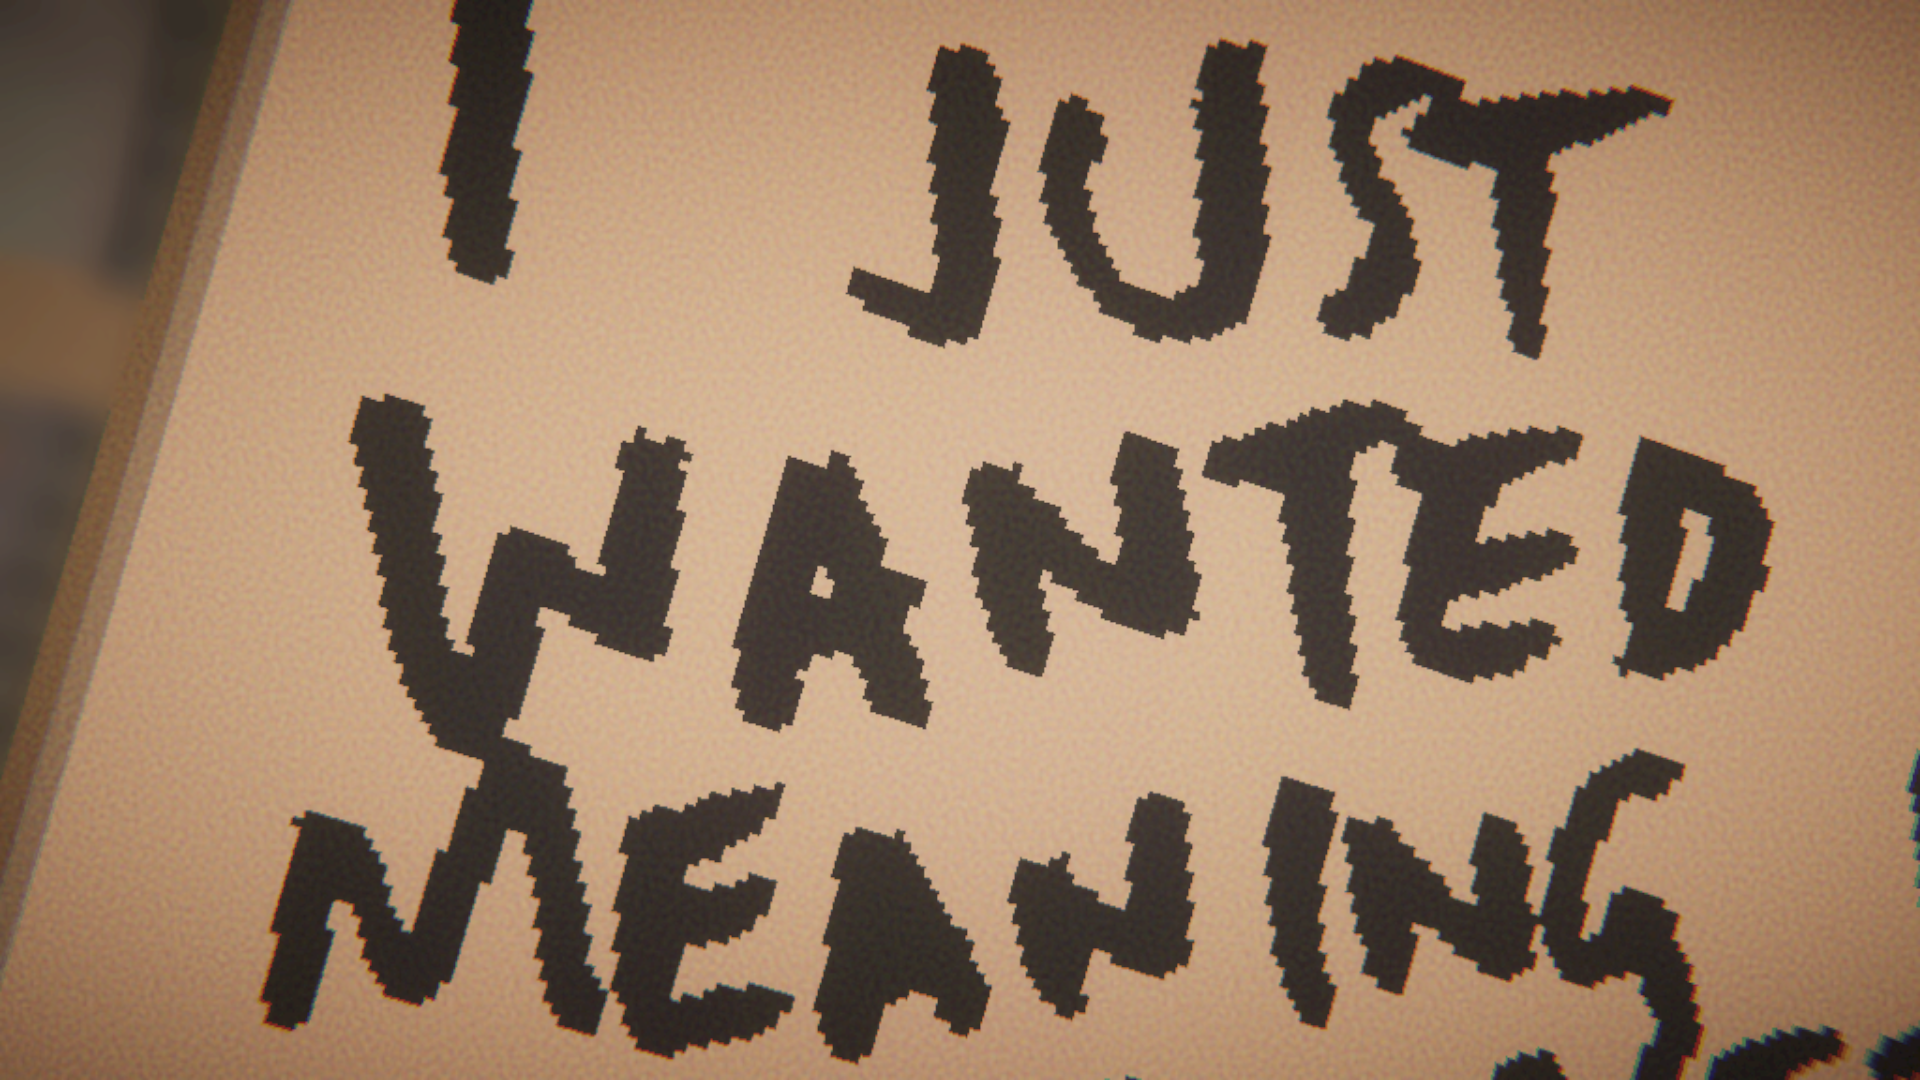 I JUST
WANTED
MEANING